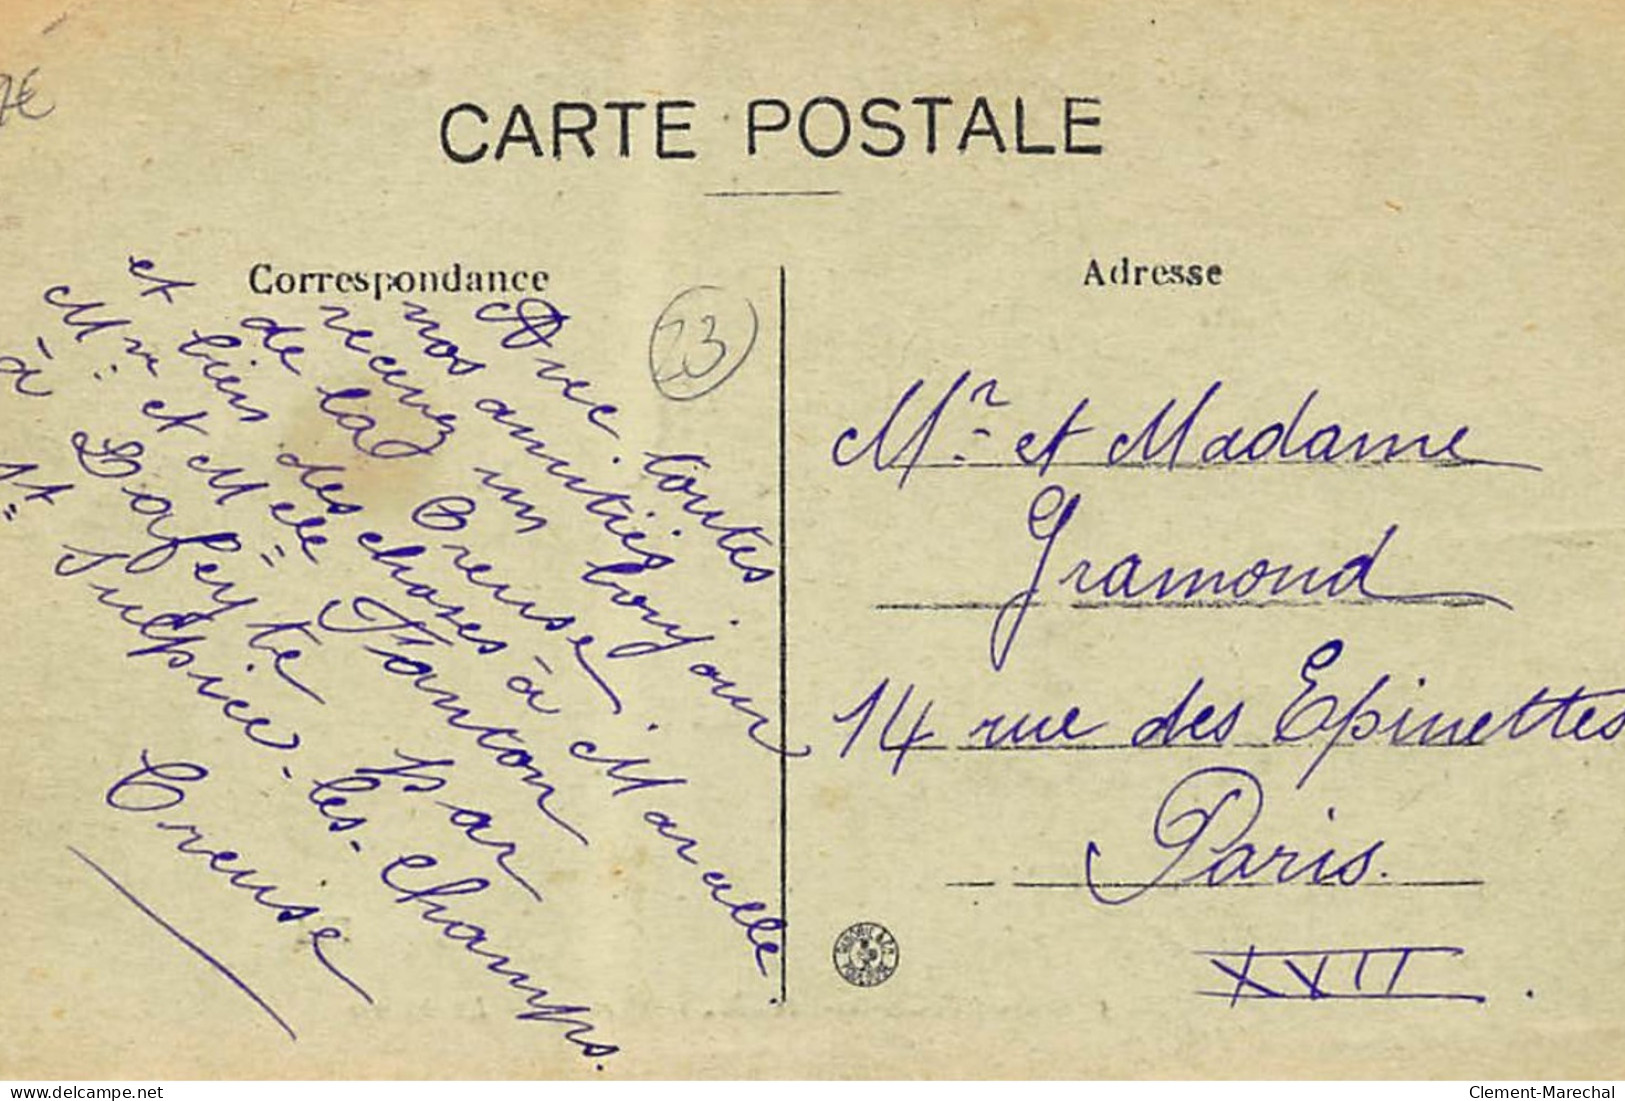 7€
CARTE POSTALE
Correspondance
Adresse
23
Avec toutes
nos amitiés
recevez un bonjour
de la Creuse
et bien des choses à Marcelle.
Mr. et Melle Tonton
à Lafeyte par
St Sulpice-les-Champs.
Creuse
Mr. et Madame
Gramond
14 rue des Epinettes
Paris.
XVII.
delcampe.net
Clement-Marechal